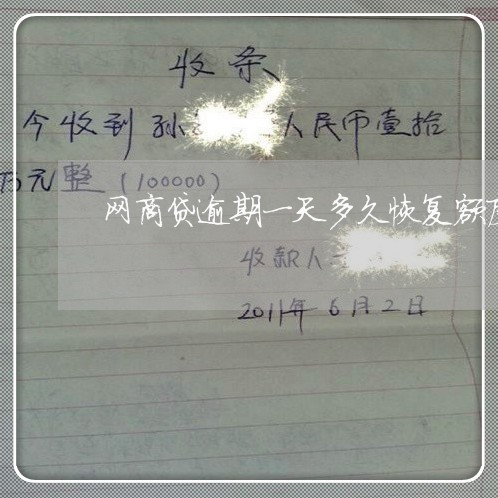 收条
今收到孙 人民币壹拾
万元整（100000）
网商贷逾期一天多久恢复额度
收款人
2011年6月2日